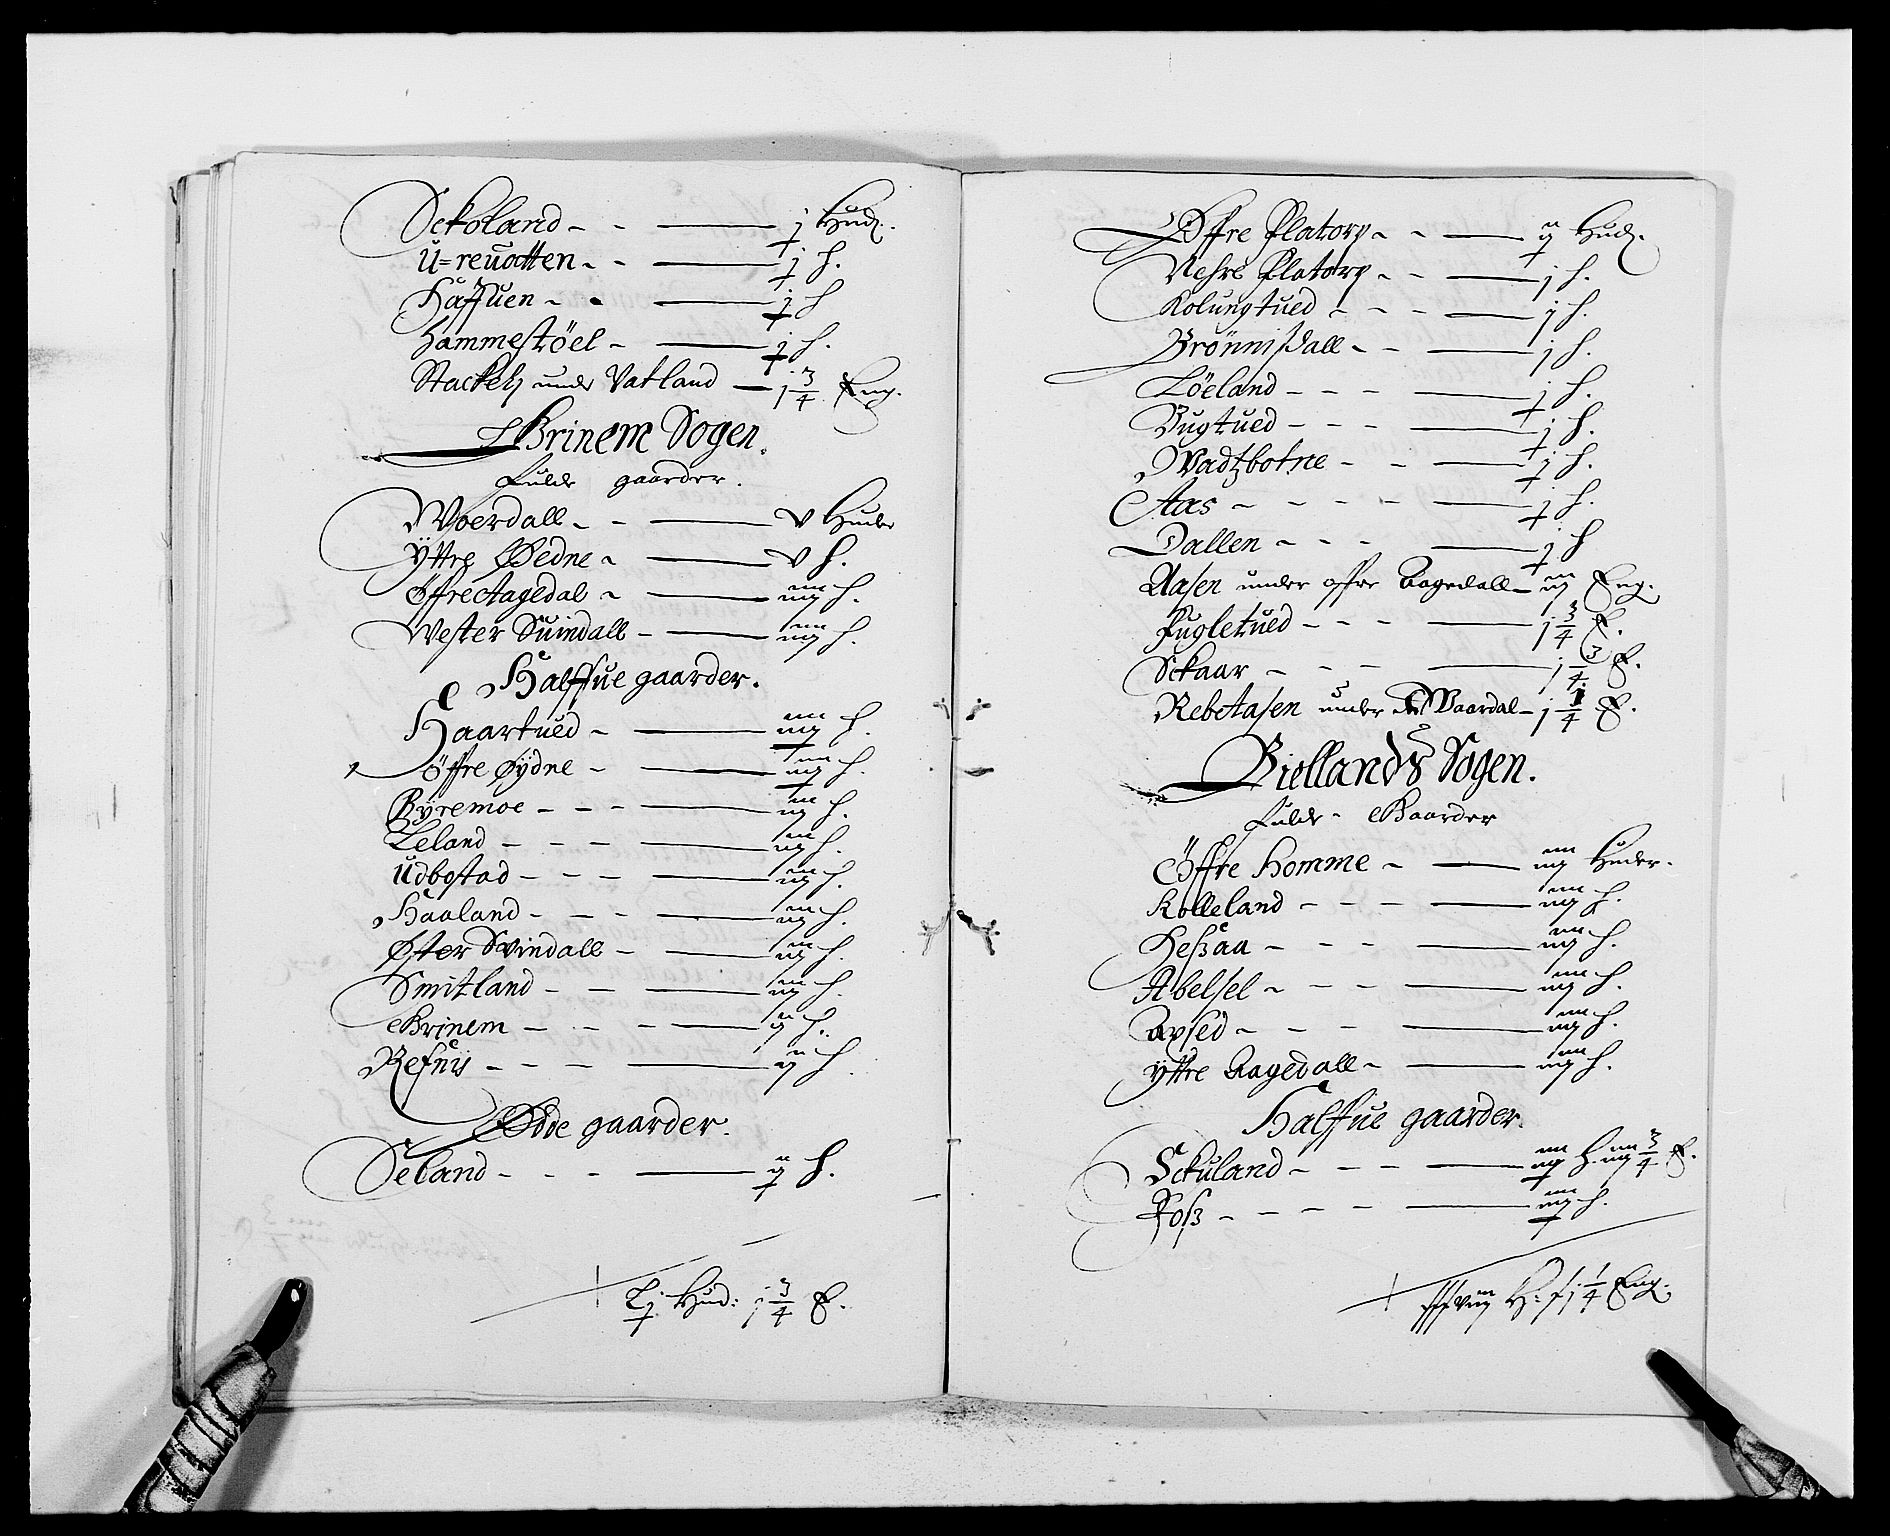 Sckoland - - — j Hud.
U=reuotten - - — j h.
Haffuen - - — j h
Hammestöel - — j h.
Stackel under Vatland — j 3/4 Eng.
Grinem Sogen.
Fulde gaarder.
Woerdall - - — v Huder
Yttre Øedne - — v h.
Öffre Aagedal - — iiij h.
Wester Suindall - — iiij h.
Halffue gaarder.
Haartued - — iiij h.
Öffre Øydne - — iij h.
Byremoe - - - — iij h.
Leland - - - — iij h.
Udbostad - - - — iij h.
Haaland - - - — iij h.
Øster Svindall - — iij h.
Smitland - - — iij h.
Grinem - - - - — ij h.
Refnis - - - — ij h.
Ødde gaarder.
Seland - - - — ij h.
Lj Hud: j 3/4 E.
Öffre Flatorp - - — ij Hud.
Nehre Flatorp - - — j h.
Kolungtued - - - — j h.
Brönnisdall - - — j h.
Löeland - - - — j h.
Bugtued - - - — j h.
Vadtzbotne - - — j h.
Aas - - - - — j h.
Dallen - - - — j h
Aasen under offre Aagedall - iij Eng.
Fugletued - - - — j 3/4 E.
Sckaar - - - — j 3/4 E.
Rebetasen under Waardal - j 1/4 E.
Biellands Sogen.
Fulde - Gaarder
Öffre Homme - — iiij Huder.
Kolleland - - - — iiij h.
Heßaa - - - — iiij h.
Abelsel - - - — iiij h.
Apsed - - - — iiij h.
Yttre Aagedall - — iiij h.
Halffue gaarder.
Sckuland - - - — iiij h. iiij 3/4 E.
Foß - - - - — iiij h.
H: 1/4 Eng.